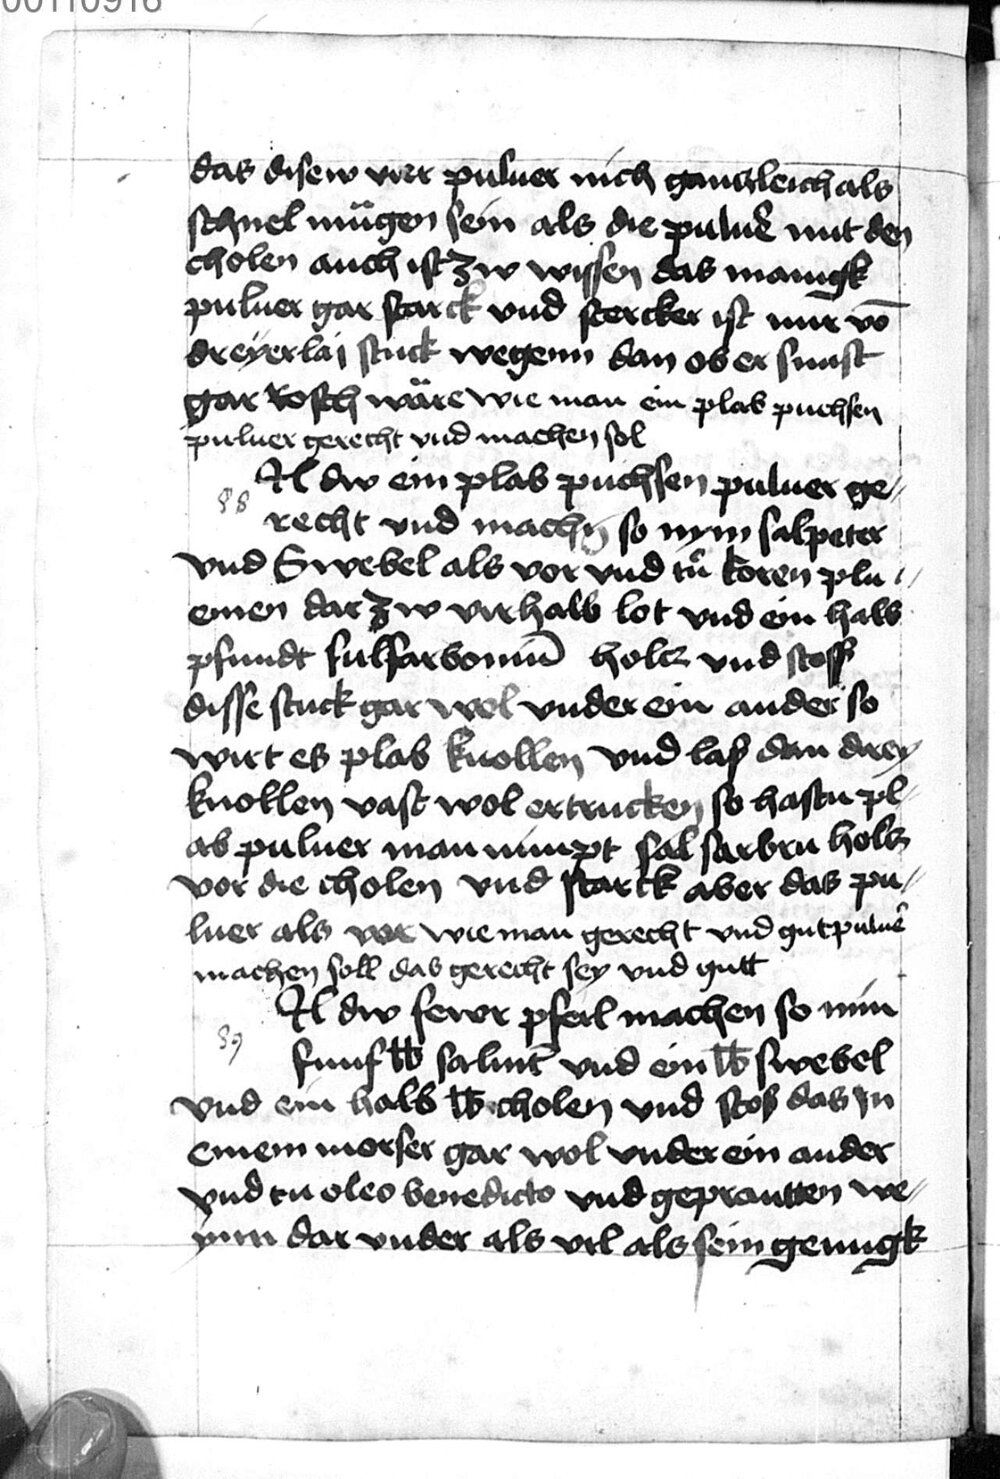 00110916
das disew vier puluer nich gantzleich als
schnel mügen sein als die puluer mit den
cholen auch ist zw wissen das manigk
puluer gar starck vnd stercker ist nur vō
dreyerlai stuck wegenn dan ob er sunst
gar rosch wäre wie man ein plab puchsen
puluer gerecht vnd machen sol
Jl dw ein plab puchsen puluer ge//
88
recht vnd machn so nym salpeter
vnd Swebel als vor vnd tu koren plu//
emen dar zw vir halb lot vnd ein halb
pfundt holcz vnd stoss
disse stuck gar wol vnder ein ander so
wirt es plab knollen vnd las dan drey
knollen vast wol ertrucken so hastu pl//
ab puluer man nimpt sal holtz
vor die cholen vnd starck aber das pu//
luer als vor wie man gerecht vnd gut puluer
machen soll das gerecht sey vnd gutt
Jl dw fewr pfeil machen so nim
89
funf lb salnit vnd ein lb swebel
vnd ein halb lb cholen vnd stos das in
einem morser gar wol vnder ein ander
vnd tu oleo benedicto vnd geprantten we//
ynn dar vnder als vil als sein genugk